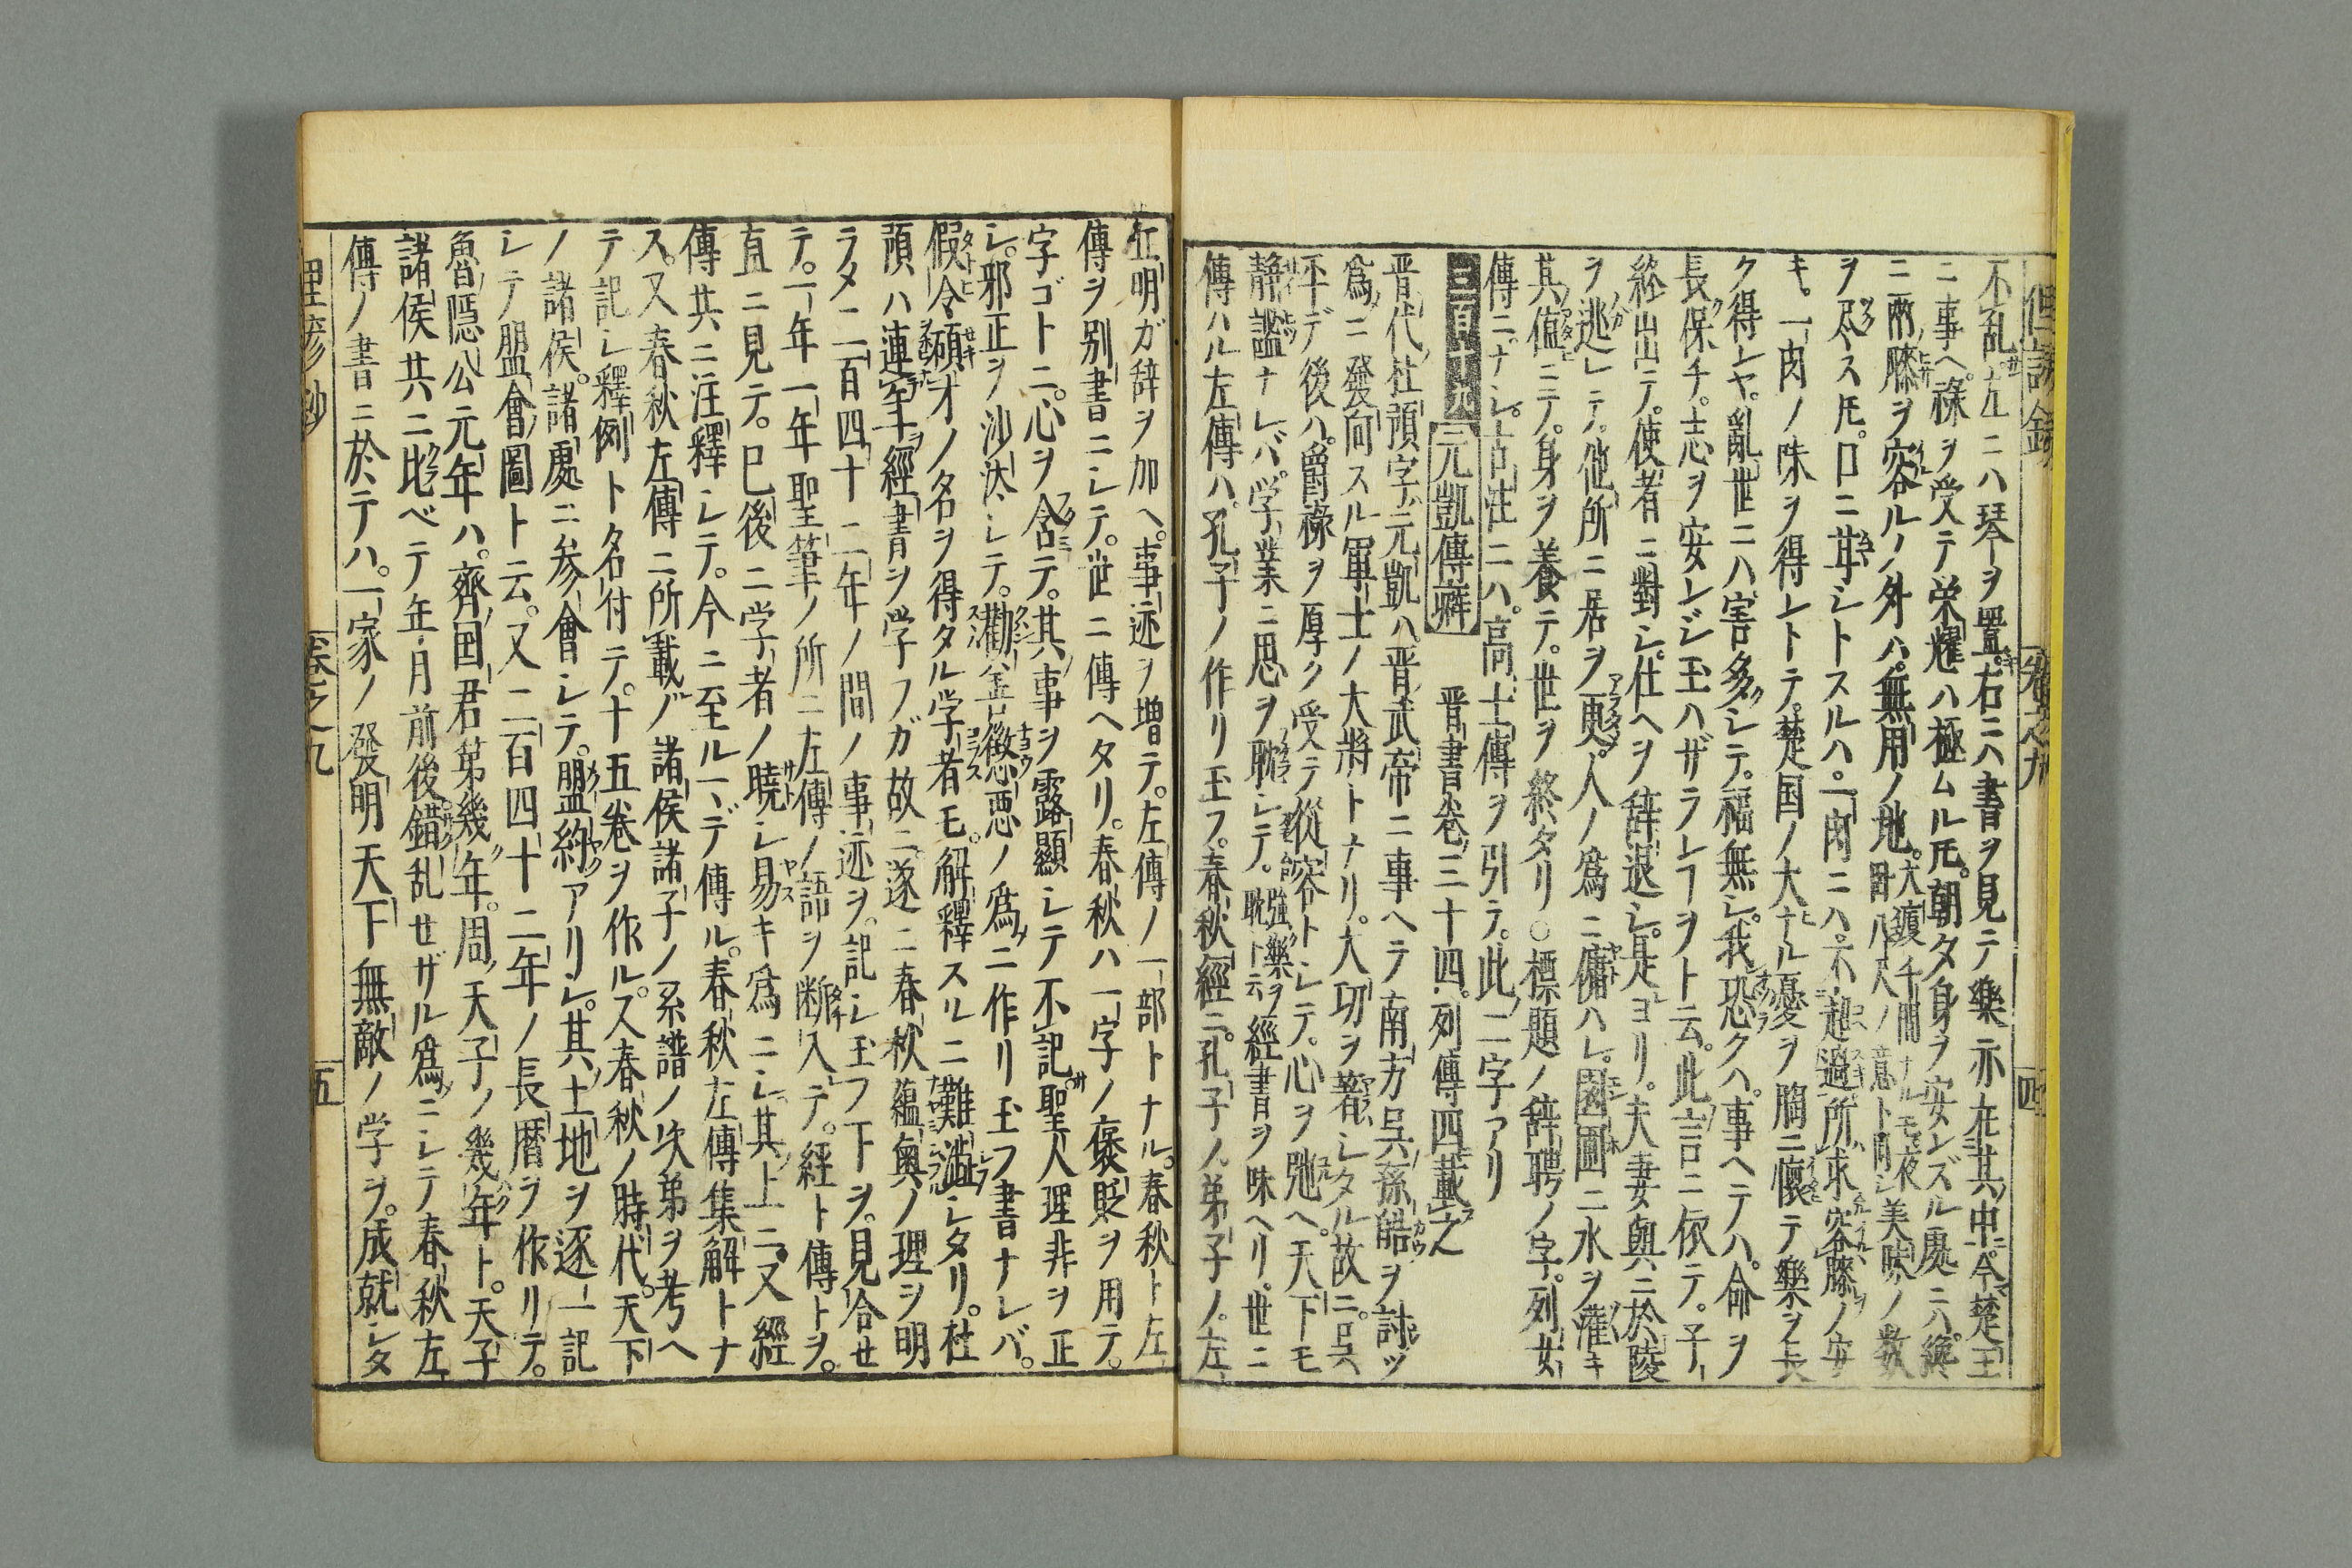 不乱左ニハ琴ヲ置右ニハ書ヲ見テ樂亦在其中今楚王
ニ事ヘ。禄ヲ受テ栄耀ハ極ムル𪜈。朝夕身ヲ安ンズル處ニハ纔
ニ兩膝ヲ容ルノ外ハ。無用ノ地。大廈千間ナルモ夜臥八尺ノ意ト同シ美味ノ数
ヲ尽スス𪜈。口ニ甘シトスルハ。一肉ニハ。不超過所求容膝ノ安
キ。一肉ノ味ヲ得ントテ。楚国ノ大ナル憂ヲ胸ニ懐テ樂ヲ長
ク得レヤ。亂世ニハ害多クシテ。福無シ。我恐クハ。事ヘテハ。命ヲ
長保チ。志ヲ安ンジ玉ハザラレヿヲト云。此言ニ依テ。子
終出テ。使者ニ對シ。仕ヘヲ辞退シ。是ヨリ。夫妻與ニ於陵
ヲ逃レテ。他所ニ居ヲ更。人ノ爲ニ傭ハレ。園圃ニ水ヲ灌キ
其値ニテ。身ヲ養テ。世ヲ終タリ○標題ノ辞聘ノ字。列女
傳ニナシ。古注ニハ。高士傳ヲ引テ。此二字アリ
三百十九 元凱傳癖 晋書巻三十四。列傳四載之
晋代杜預字元凱ハ晋武帝ニ事ヘテ南方呉孫皓ヲ討ツ
爲ニ發向スル軍士ノ大將トナリ。大切ヲ著シタル故ニ。呉
平デ後ハ。爵禄ヲ厚ク受テ從容トシテ。心ヲ弛ヘ。天下モ
靜謐ナレバ。学業ニ思ヲ耽シテ。強樂ヲ耽ト云經書ヲ味ヘリ。世ニ
傳ハル左傳ハ。孔子ノ作リ玉フ。春秋經ニ。孔子ノ弟子ノ。左
丘明ガ辞ヲ加ヘ。事迹ヲ増テ。左傳ノ一部トナル。春秋ト左
傳ヲ別書ニシテ。世ニ傳ヘタリ。春秋ハ一字ノ褒貶ヲ用テ。
字ゴトニ。心ヲ含テ。其事ヲ露顯シテ不記聖人理非ヲ正
シ。邪正ヲ沙汰シテ。勸善懲悪ノ爲ニ作リ玉フ書ナレバ。
假令碩才ノ名ヲ得タル学者モ。解釋スルニ難澁シタリ。杜
預ハ連年經書ヲ学フガ故ニ。遂ニ春秋蘊奥ノ理ヲ明
ラメ二百四十二年ノ間ノ事迹ヲ。記シ玉フ下ヲ。見合セ
テ。一年一年聖筆ノ所ニ左傳ノ語ヲ断入テ。經ト傳トヲ。
直ニ見テ。已後ニ学者ノ曉シ易キ爲ニシ。其上ニ又經
傳共ニ注釋シテ。今ニ至ルヽデ傳ル。春秋左傳集解トナ
ス。又春秋左傳ニ所載ノ諸侯諸子ノ系譜ノ次第ヲ考ヘ
テ記シ釋例ト名付テ。十五巻ヲ作ル。又春秋ノ時代。天下
ノ諸侯。諸處ニ参會シテ。盟約アリシ。其土地ヲ逐一記
シテ盟會圖ト云。又二百四十二年ノ長暦ヲ作リテ。
魯隠公元年ハ。齊国君第幾年。周ノ天子ノ幾年ト。天子
諸侯共ニ比ベテ年月前後。錯乱セザル爲ニシテ春秋左
傳ノ書ニ於テハ。一家ノ發明天下無敵ノ学ヲ。成就シタ
巻之九 四
巻之九 五